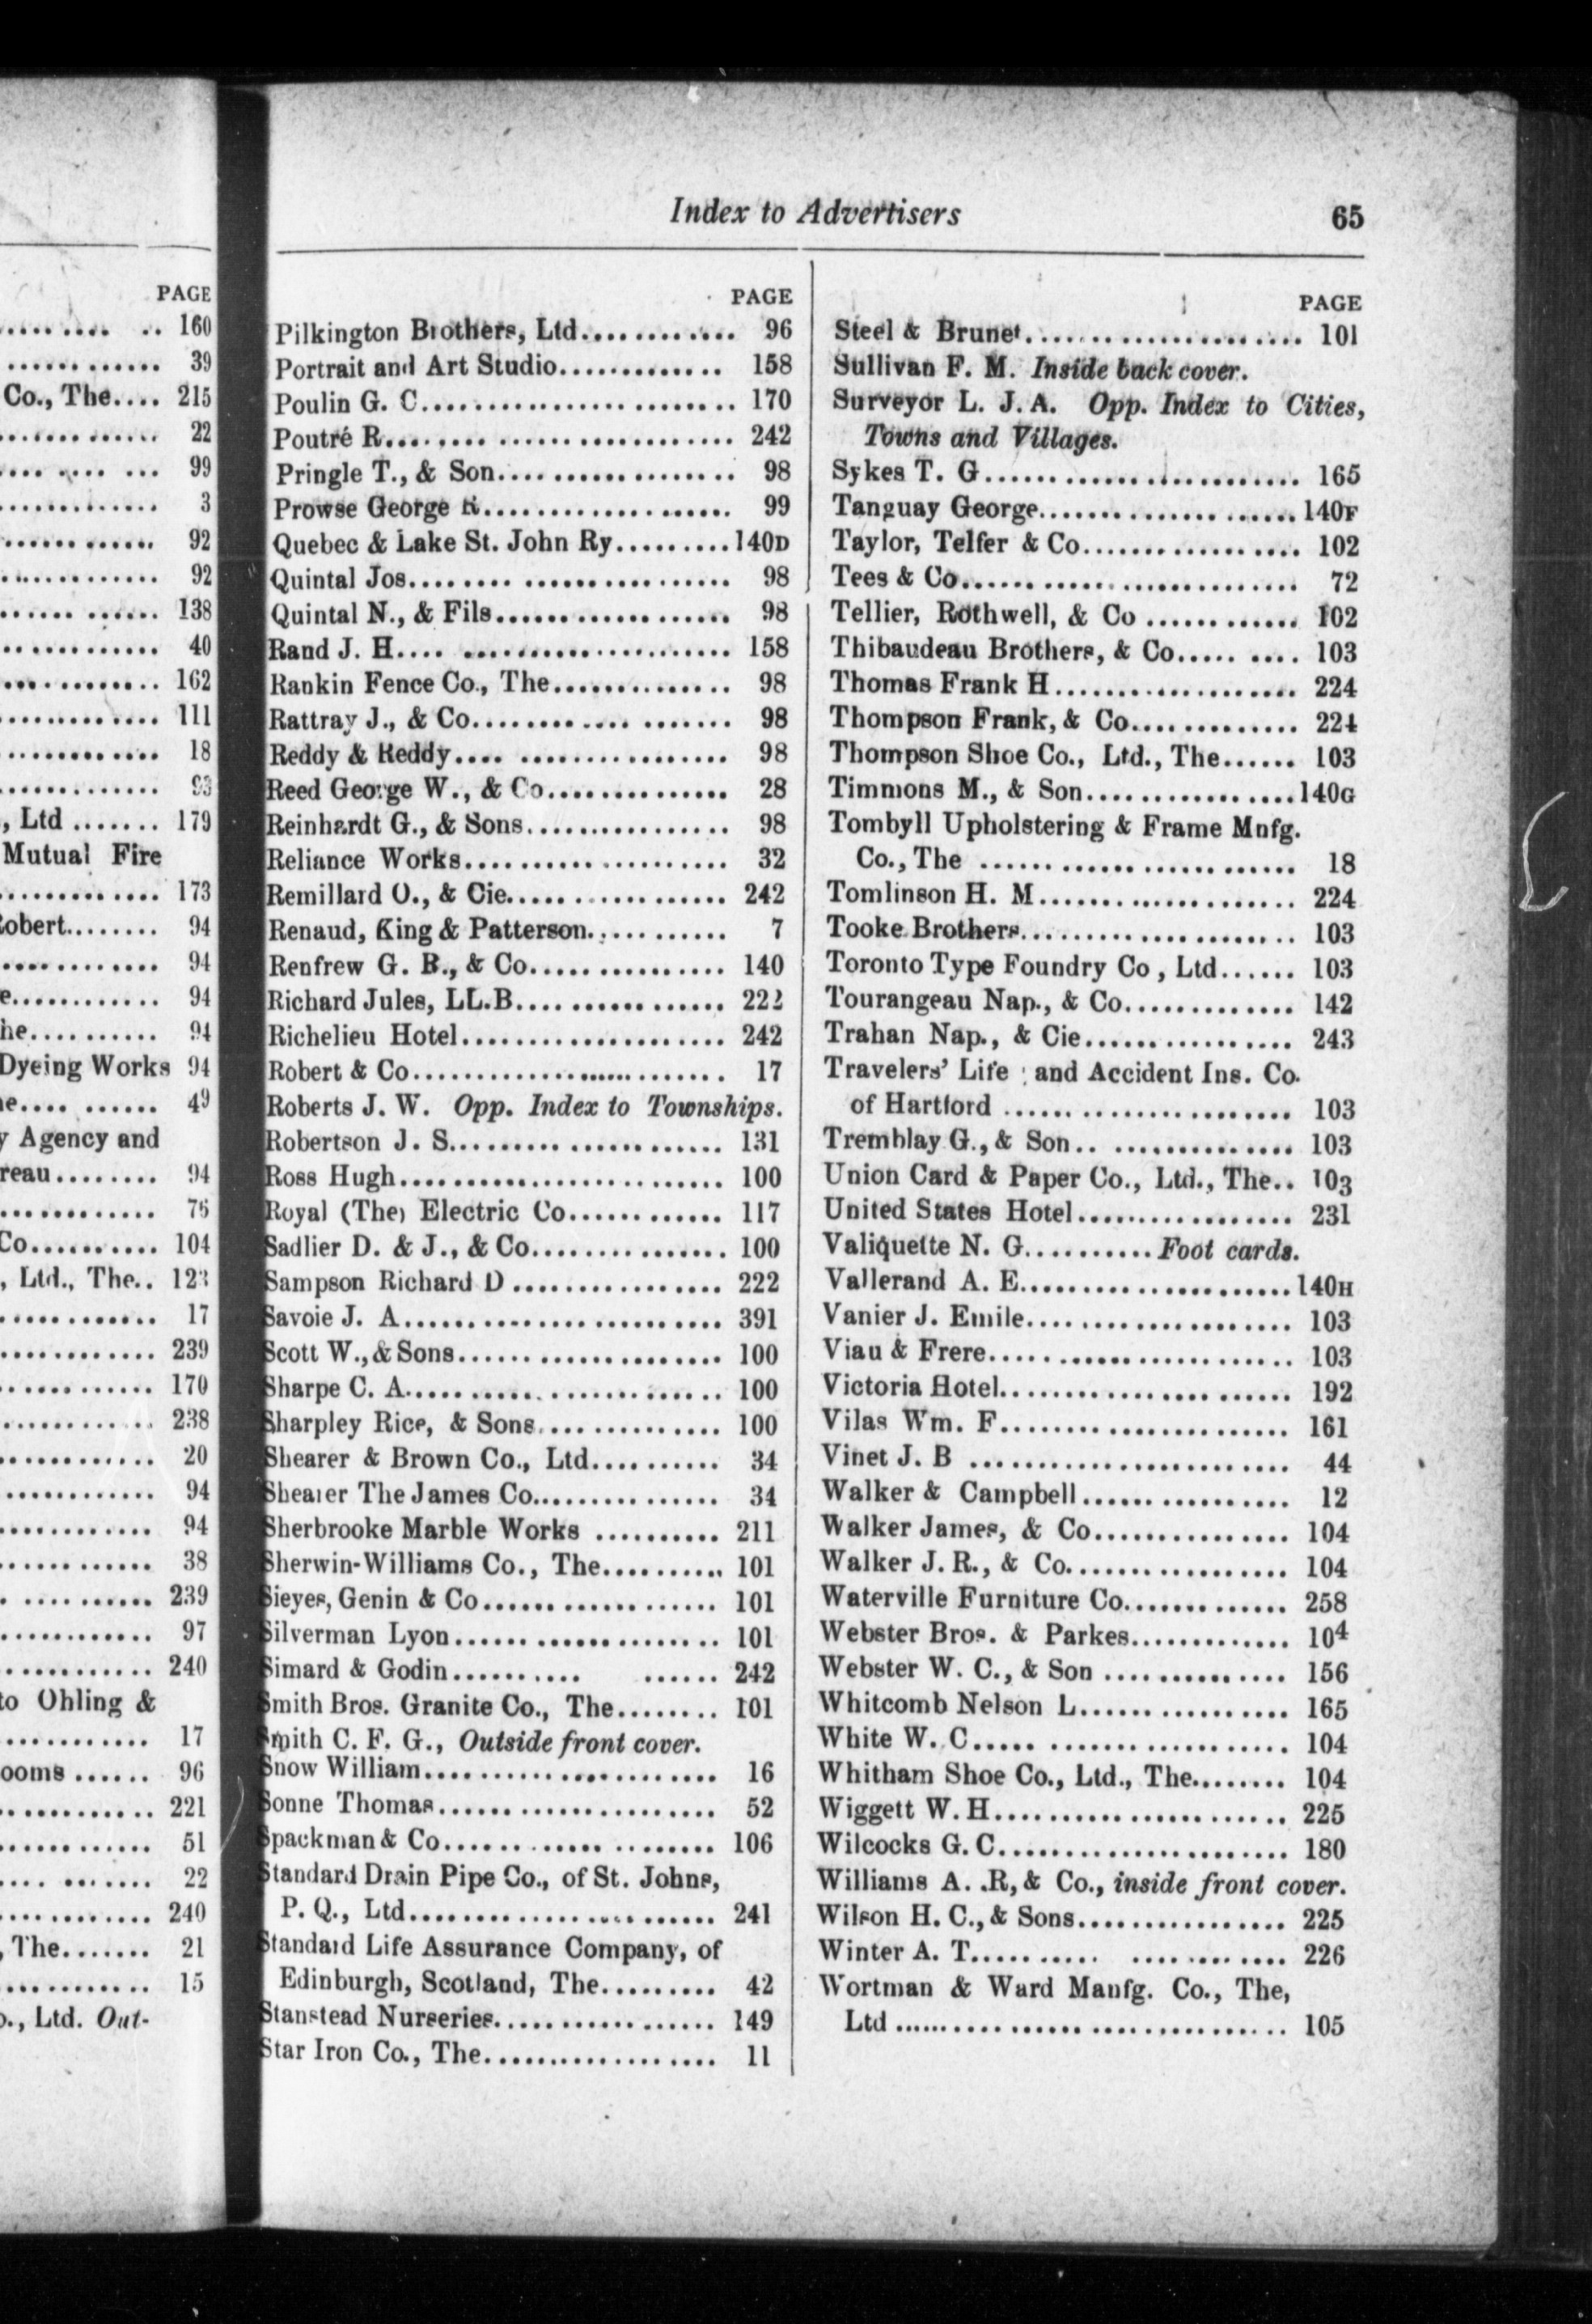 PAGE
160
39
Co., The.... 215
22
99
3
92
92
138
40
162
111
18
93
, Ltd ....... 179
Mutual Fire
173
obert........ 94
94
e............ 94
he........... 94
Dyeing Works 94
e.... ...... 49
y Agency and
reau........ 94
76
Co.......... 104
, Ltd., The.. 123
17
239
170
238
20
94
94
38
239
97
240
to Ohling &
17
ooms ...... 96
221
51
22
240
, The....... 21
15
o., Ltd. Out-
Index to Advertisers 65
PAGE
Pilkington Brothers, Ltd............ 96
Portrait and Art Studio............. 158
Poulin G. C........................ 170
Poutré R.......................... 242
Pringle T., & Son.................. 98
Prowse George R................... 99
Quebec & Lake St. John Ry.........140D
Quintal Jos........................ 98
Quintal N., & Fils.................. 98
Rand J. H......................... 158
Rankin Fence Co., The.............. 98
Rattray J., & Co.................... 98
Reddy & Reddy.................... 98
Reed George W., & Co............... 28
Reinhardt G., & Sons................ 98
Reliance Works.................... 32
Remillard O., & Cie................. 242
Renaud, King & Patterson........... 7
Renfrew G. B., & Co................ 140
Richard Jules, LL.B................ 222
Richelieu Hotel.................... 242
Robert & Co....................... 17
Roberts J. W. Opp. Index to Townships.
Robertson J. S..................... 131
Ross Hugh........................ 100
Royal (The) Electric Co............ 117
Sadlier D. & J., & Co............... 100
Sampson Richard D ................ 222
Savoie J. A........................ 391
Scott W., & Sons.................... 100
Sharpe C. A........................ 100
Sharpley Rice, & Sons.............. 100
Shearer & Brown Co., Ltd.......... 34
Shearer The James Co.............. 34
Sherbrooke Marble Works .......... 211
Sherwin-Williams Co., The.......... 101
Sieyes, Genin & Co.................. 101
Silverman Lyon.................... 101
Simard & Godin.......... ...... 242
Smith Bros. Granite Co., The........ 101
Smith C. F. G., Outside front cover.
Snow William...................... 16
Sonne Thomas..................... 52
Spackman & Co.................... 106
Standard Drain Pipe Co., of St. Johns,
P. Q., Ltd....................... 241
Standard Life Assurance Company, of
Edinburgh, Scotland, The......... 42
Stanstead Nurseries................. 149
Star Iron Co., The.................. 11
PAGE
Steel & Brunet..................... 101
Sullivan F. M. Inside back cover.
Surveyor L. J. A. Opp. Index to Cities,
Towns and Villages.
Sykes T. G........................ 165
Tanguay George...................140F
Taylor, Telfer & Co................ 102
Tees & Co......................... 72
Tellier, Rothwell, & Co ............ 102
Thibaudeau Brothers, & Co..... .... 103
Thomas Frank H................... 224
Thompson Frank, & Co............. 224
Thompson Shoe Co., Ltd., The...... 103
Timmons M., & Son................140G
Tombyll Upholstering & Frame Mnfg.
Co., The ........................ 18
Tomlinson H. M.................... 224
Tooke Brothers..................... 103
Toronto Type Foundry Co , Ltd...... 103
Tourangeau Nap., & Co............. 142
Trahan Nap., & Cie................ 243
Travelers' Life and Accident Ins. Co.
of Hartford ...................... 103
Tremblay G., & Son.. .............. 103
Union Card & Paper Co., Ltd., The.. 103
United States Hotel................ 231
Valiquette N. G..........Foot cards.
Vallerand A. E.....................140H
Vanier J. Emile.................... 103
Viau & Frere....................... 103
Victoria Hotel...................... 192
Vilas Wm. F...................... 161
Vinet J. B ........................ 44
Walker & Campbell................ 12
Walker James, & Co............... 104
Walker J. R., & Co................. 104
Waterville Furniture Co............ 258
Webster Bros. & Parkes............ 104
Webster W. C., & Son .............. 156
Whitcomb Nelson L................ 165
White W. C....................... 104
Whitham Shoe Co., Ltd., The........ 104
Wiggett W. H...................... 225
Wilcocks G. C...................... 180
Williams A. .R, & Co., inside front cover.
Wilson H. C., & Sons................ 225
Winter A. T.......... ............ 226
Wortman & Ward Manfg. Co., The,
Ltd ............................. 105